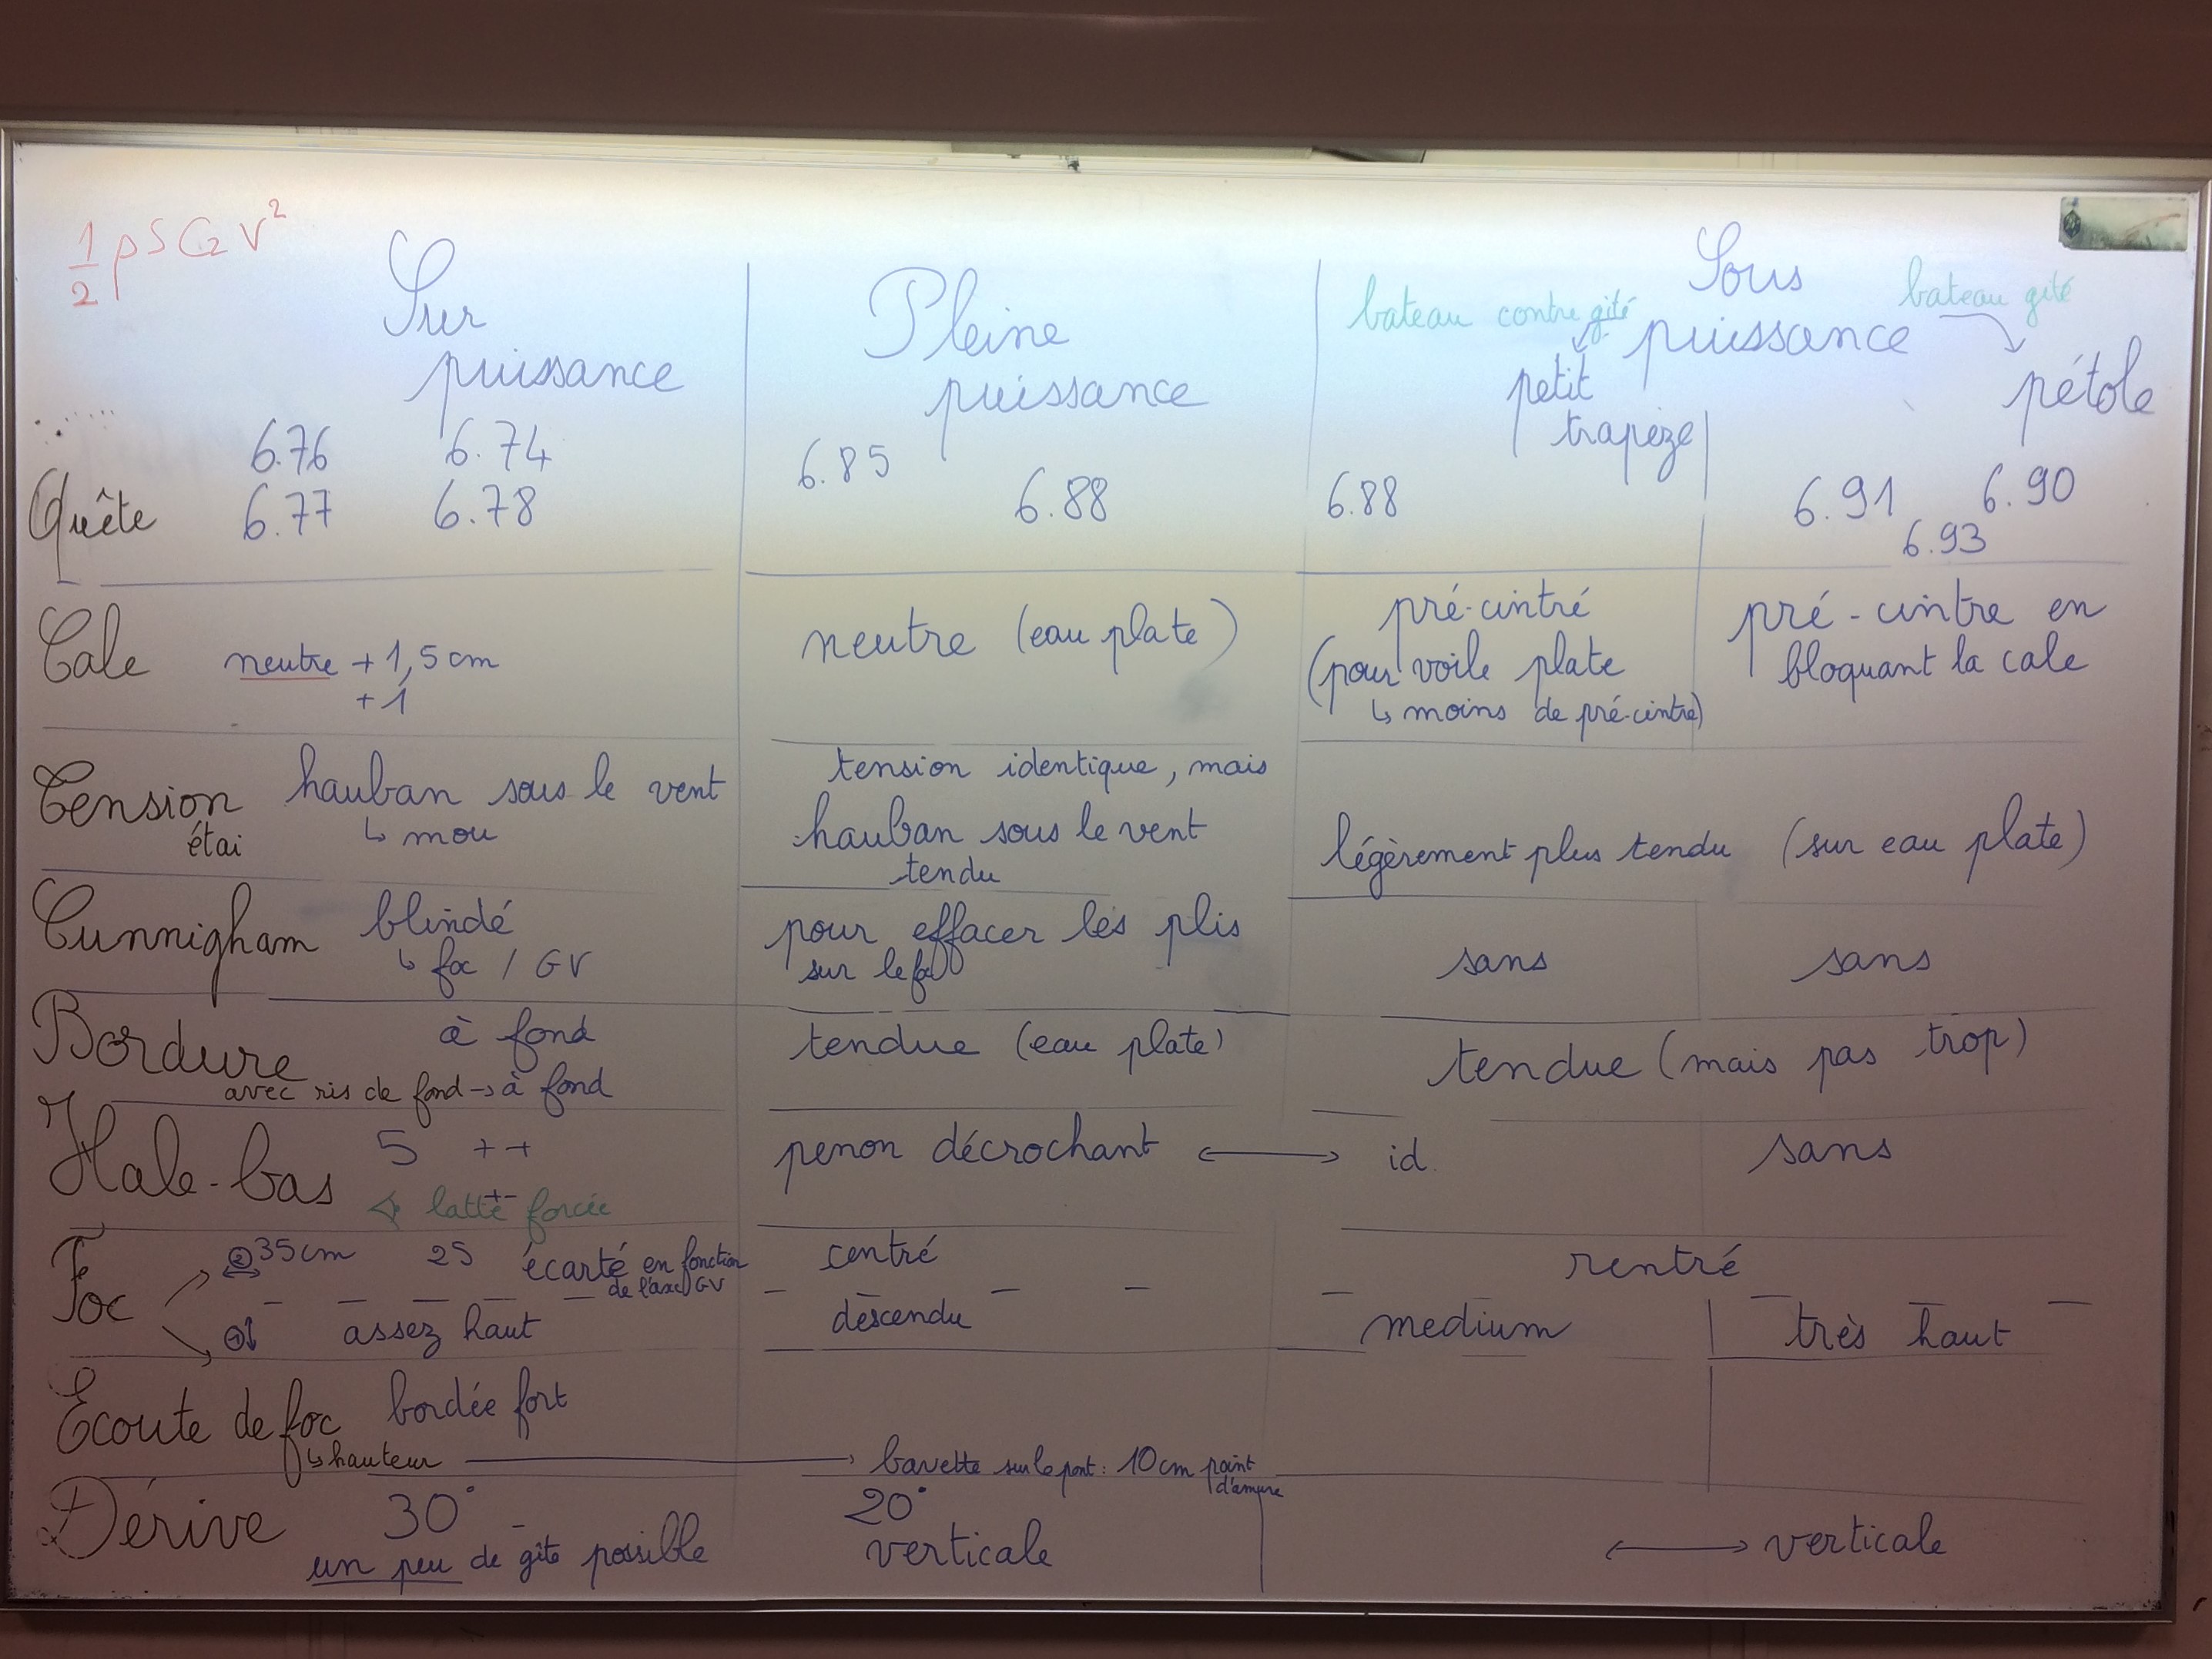 1/2 ρ S Cz V²
Sur puissance
Pleine puissance
Sous puissance
bateau contre gité
petit trapèze
bateau gité
pétole
Quête
6.76 6.74
6.77 6.78
6.85
6.88
6.88
6.91 6.90
6.93
Cale
neutre + 1,5 cm
+ 1
neutre (eau plate)
pré-cintré
(pour voile plate
↳ moins de pré-cintre)
pré-cintre en
bloquant la cale
Tension
étai
hauban sous le vent
↳ mou
tension identique, mais
hauban sous le vent
tendu
légèrement plus tendu (sur eau plate)
Cunnigham
blindé
↳ foc / GV
pour effacer les plis
sur le foc
sans
sans
Bordure
à fond
avec ris de fond → à fond
tendue (eau plate)
tendue (mais pas trop)
Hale-bas
5 ++
+-
latte forcée
penon décrochant ⟷ id.
sans
Foc
② 35cm 25 écarté en fonction
de l'axe GV
centré
rentré
① ↕ assez haut
descendu
medium
très haut
Ecoute de foc
bordée fort
↳ hauteur → bavette sur le pont : 10cm point
d'amure
Dérive
30°
un peu de gîte possible
20°
verticale
⟷ verticale